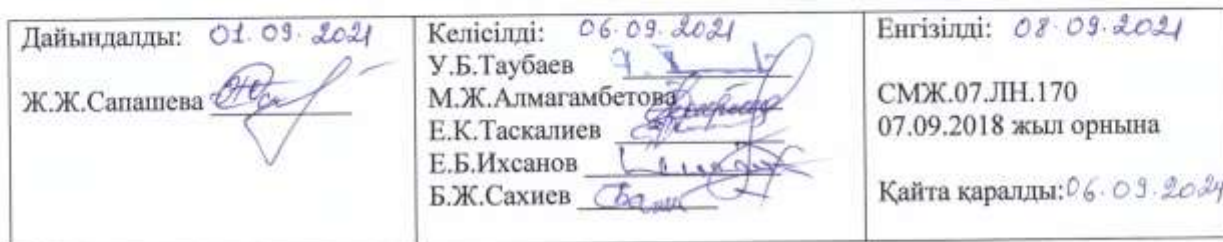 Дайындалды: 01.09.2021
Ж.Ж.Сапашева
Келісілді: 06.09.2021
У.Б.Таубаев
М.Ж.Алмагамбетова
Е.К.Таскалиев
Е.Б.Ихсанов
Б.Ж.Сахиев
Енгізілді: 08.09.2021
СМЖ.07.ЛН.170
07.09.2018 жыл орнына
Қайта қаралды: 06.09.2021